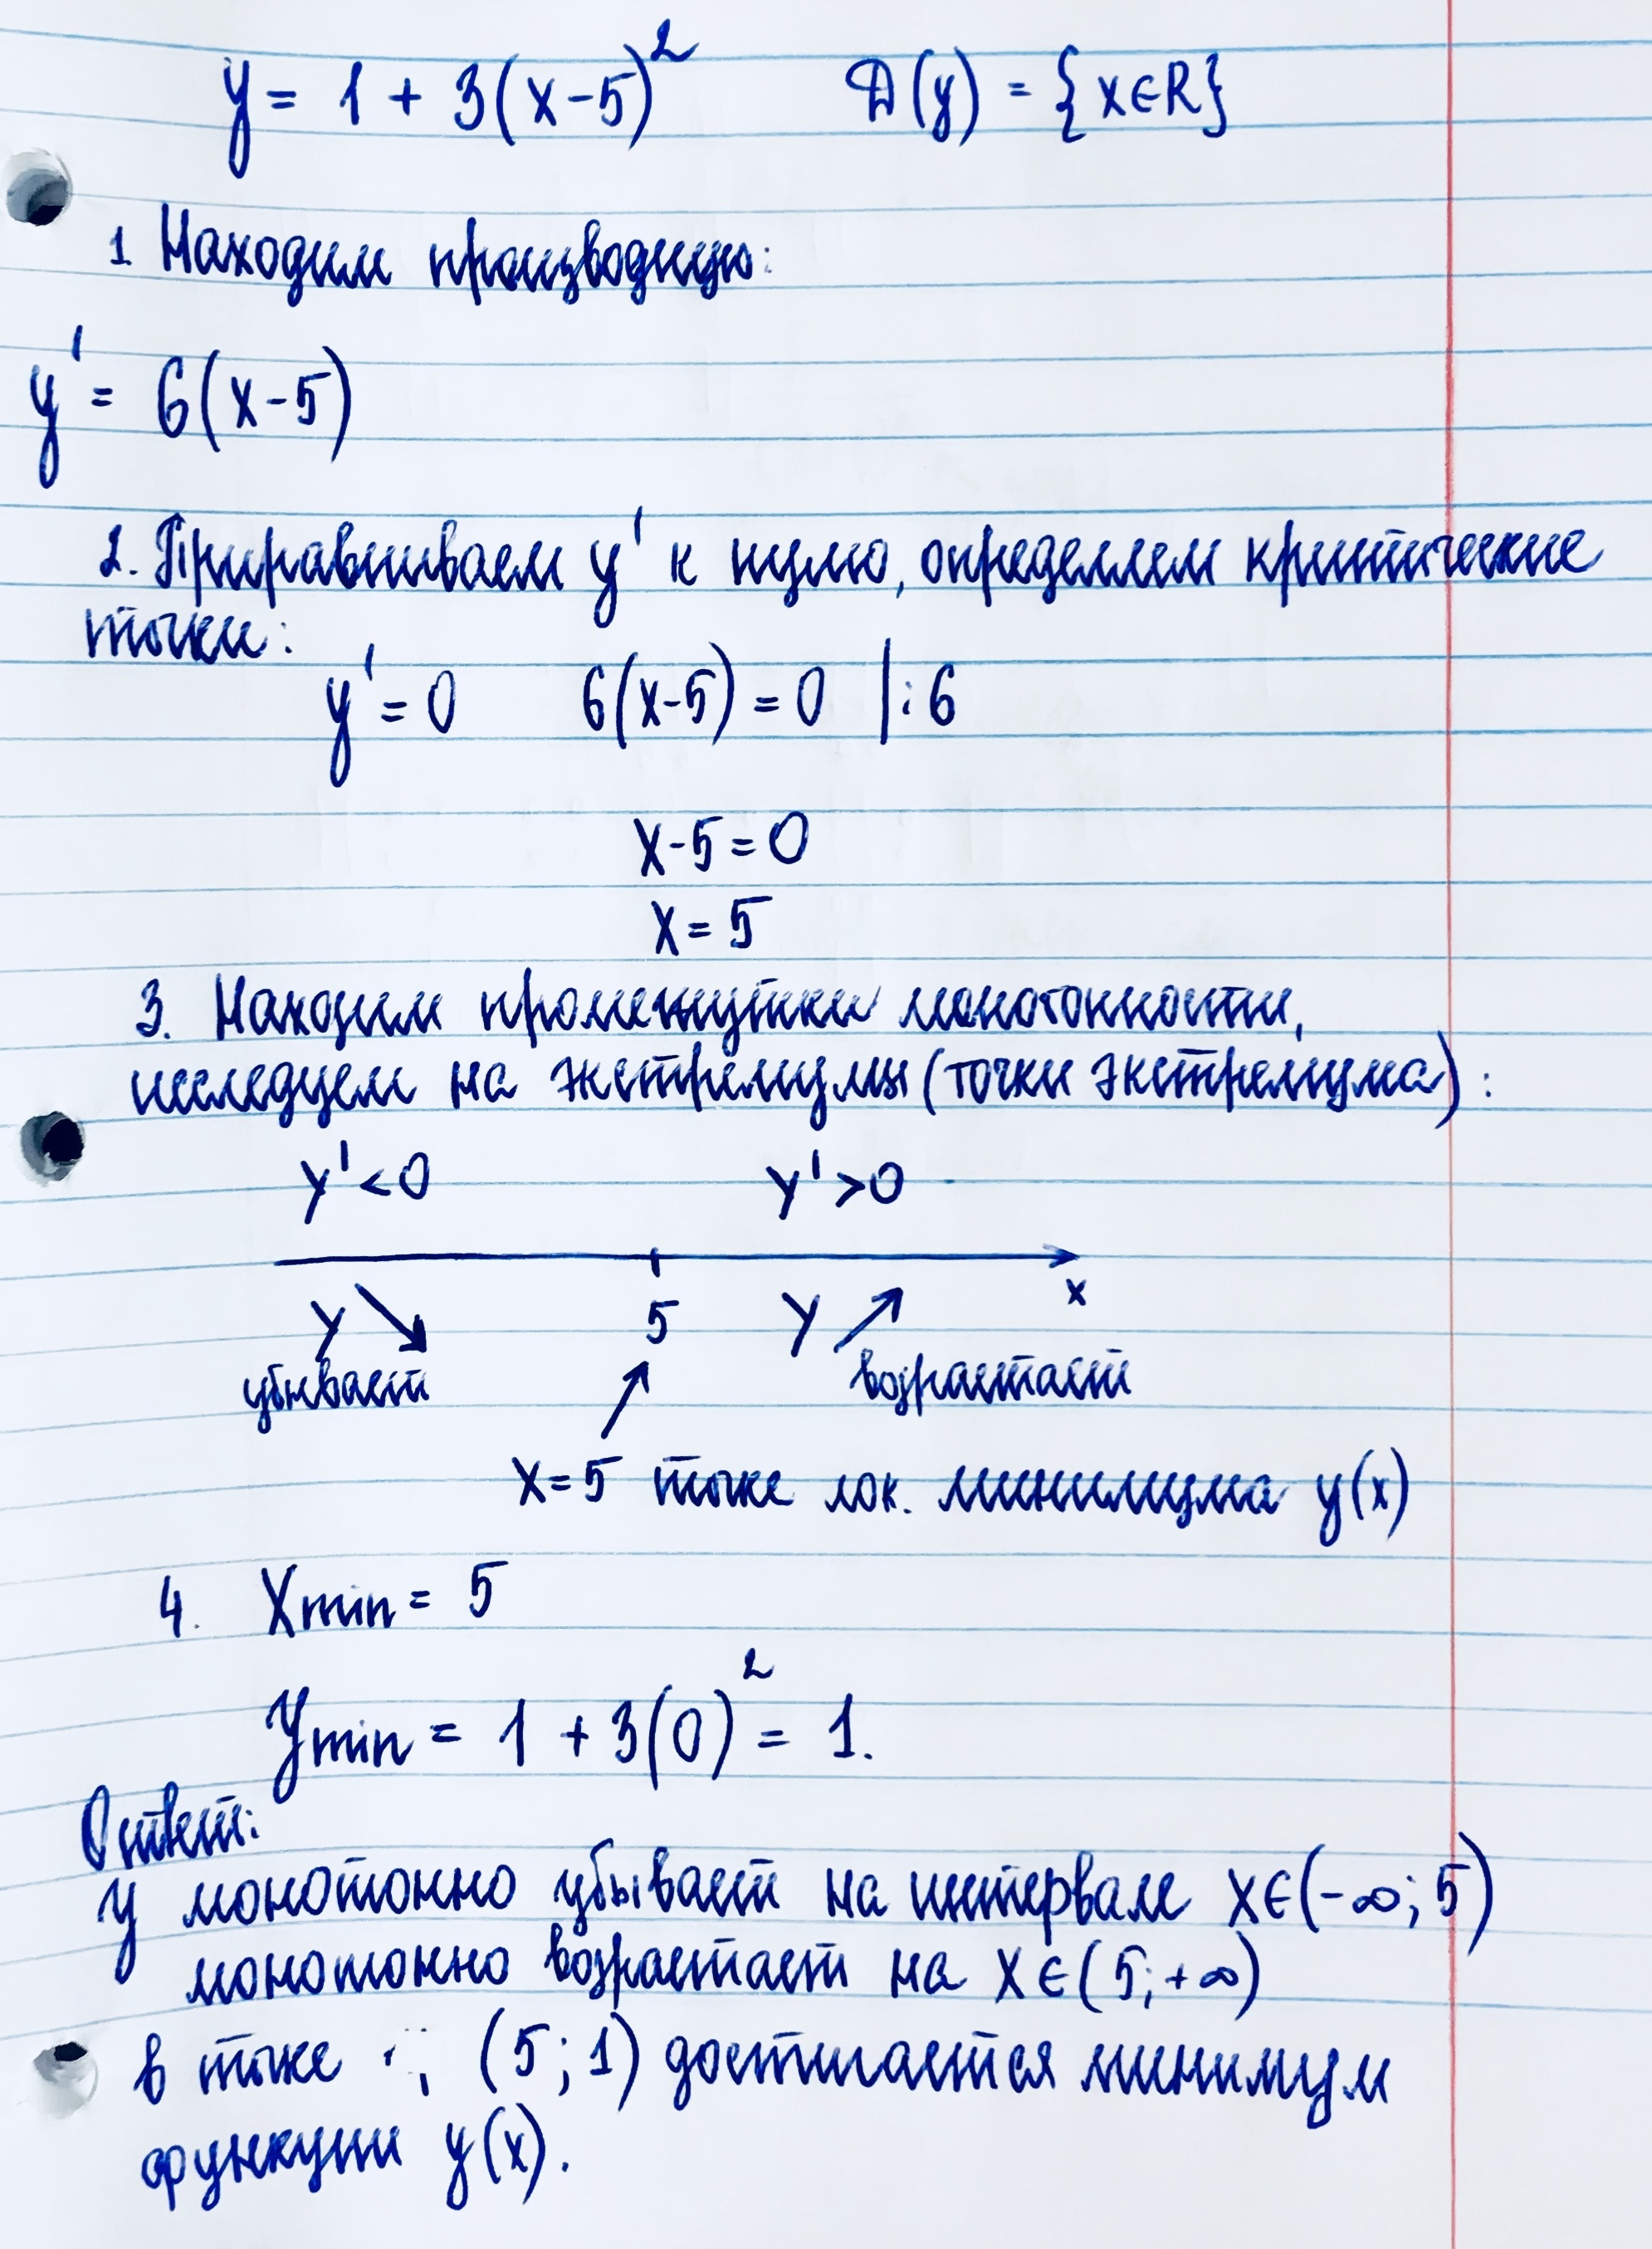 y = 1 + 3(x-5)² D(y) = {x∈R}
1 Находим производную:
y' = 6(x-5)
2. Приравниваем y' к нулю, определяем критические
точки:
y' = 0 6(x-5) = 0 |:6
x-5 = 0
x = 5
3. Находим промежутки монотонности,
исследуем на экстремумы (точки экстремума):
y' < 0 y' > 0
x
y ↘ 5 y ↗
убывает возрастает
x = 5 точке лок. минимума y(x)
4. Xmin = 5
Ymin = 1 + 3(0)² = 1.
Ответ:
y монотонно убывает на интервале x∈(-∞; 5)
монотонно возрастает на x∈(5; +∞)
в точке (5; 1) достигается минимум
функции y(x).